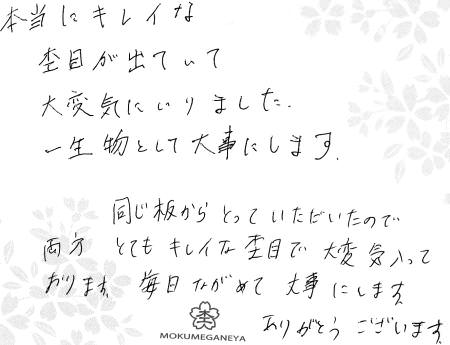 本当にキレイな
杢目が出ていて
大変気にいりました.
一生物として大事にします.
同じ板からとっていただいたので
両方 とてもキレイな杢目で大変気入って
おります. 毎日ながめて大事にします.
ありがとうございます.
杢
MOKUMEGANEYA